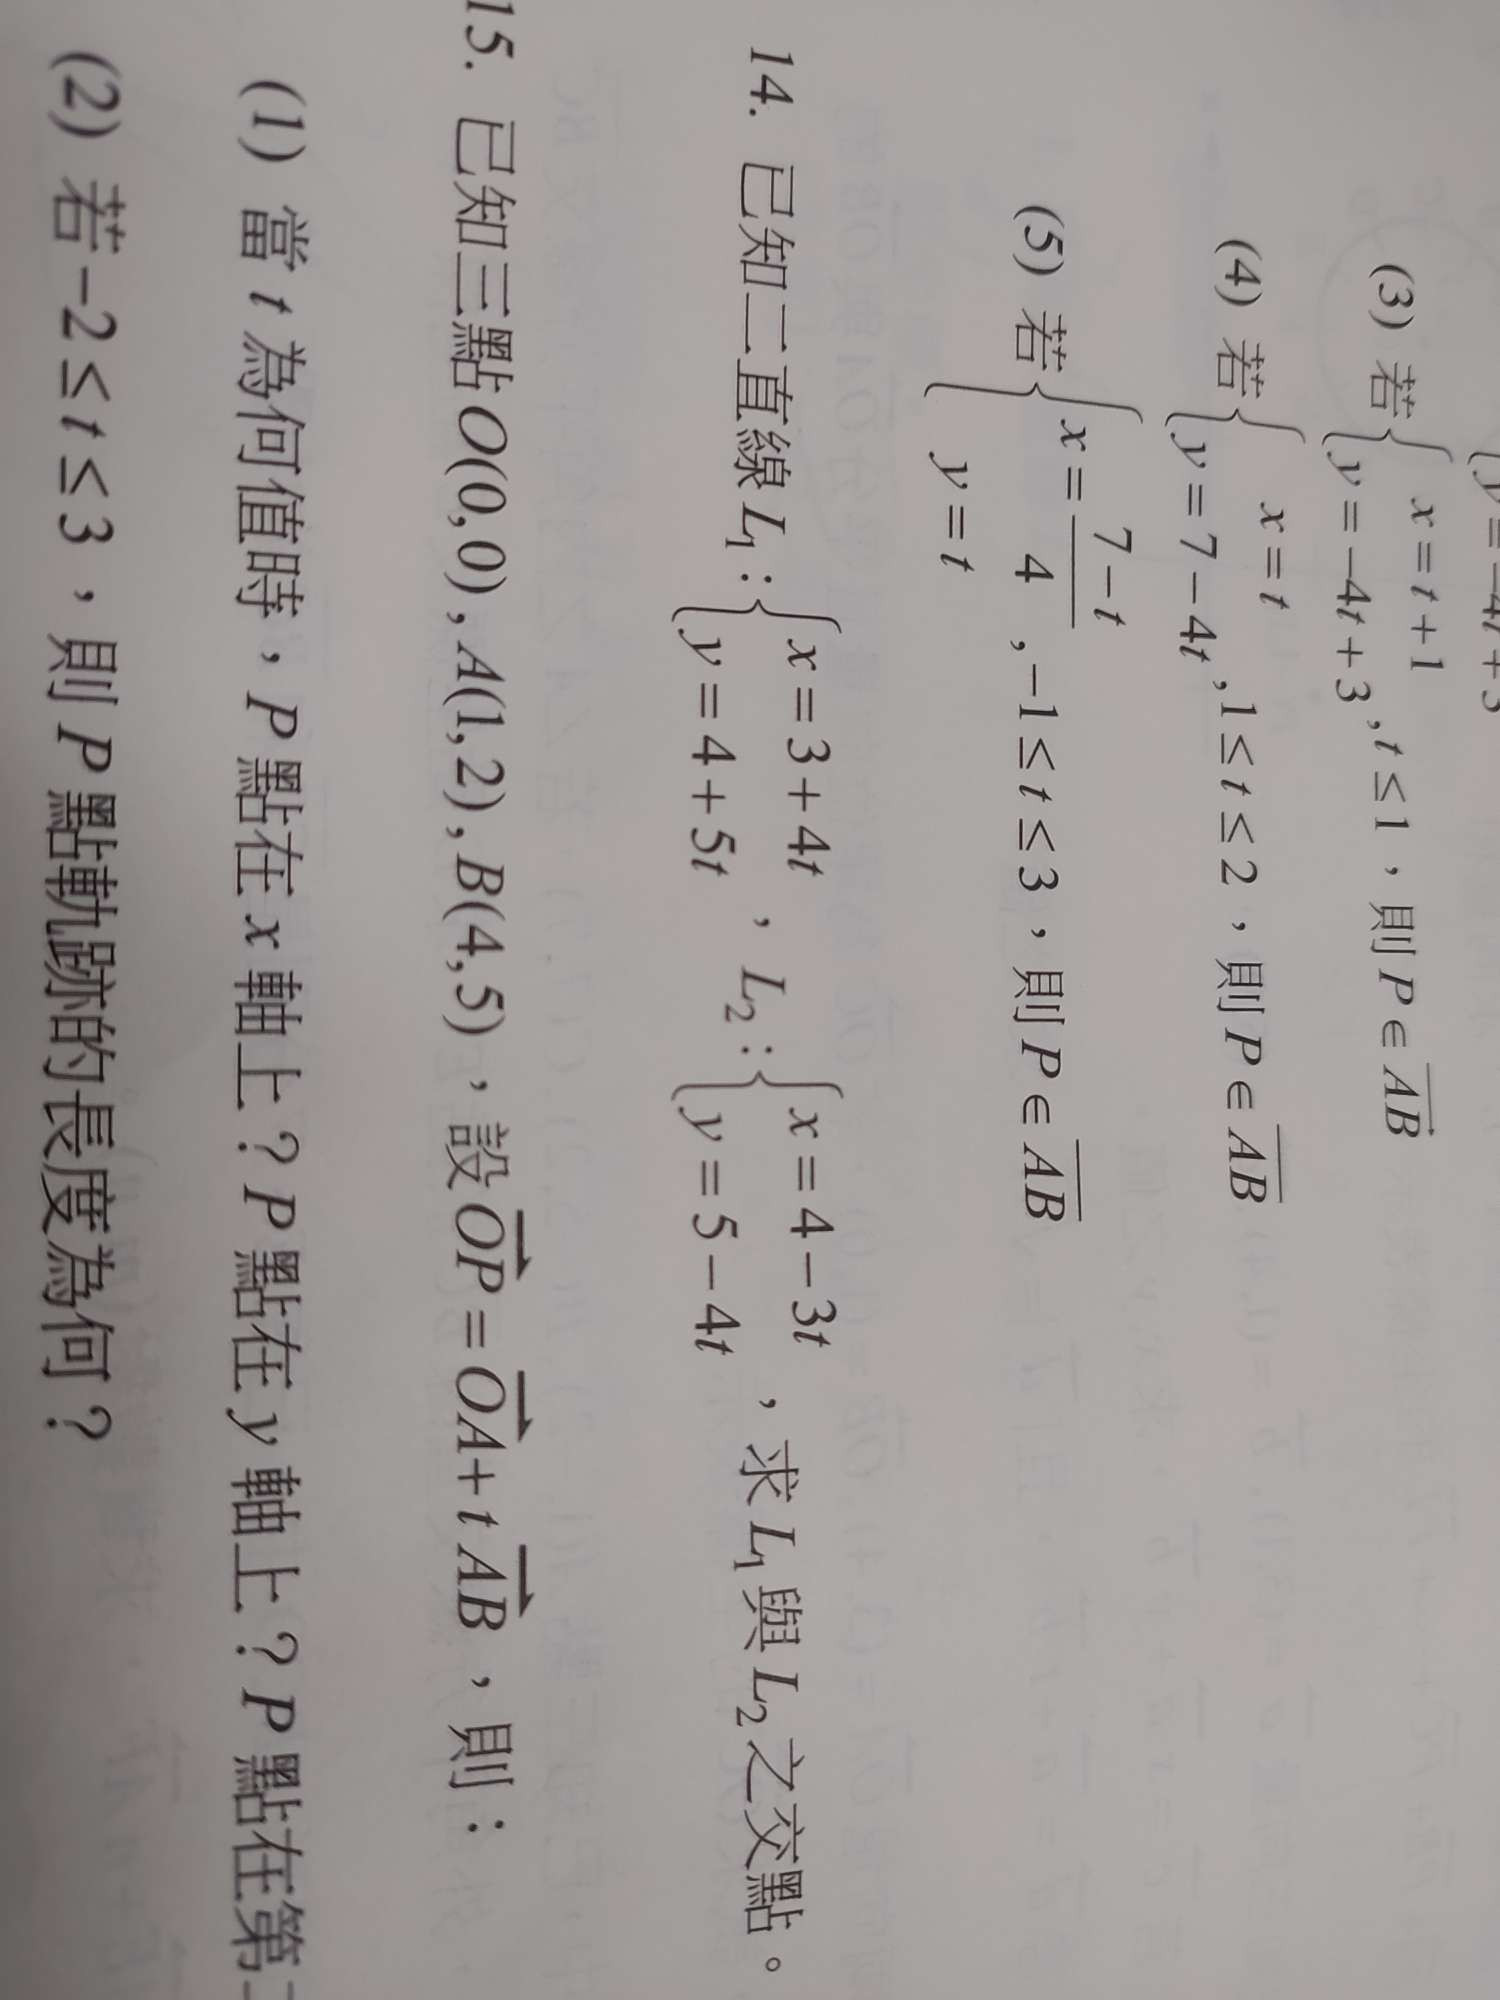 y=-4t+3
(3) 若{x=t+1
y=-4t+3 , t≤1,則P∈AB
(4) 若{x=t
y=7-4t , 1≤t≤2,則P∈AB
(5) 若{x=(7-t)/4
y=t , -1≤t≤3,則P∈AB
14. 已知二直線L₁:{x=3+4t
y=4+5t , L₂:{x=4-3t
y=5-4t ,求L₁與L₂之交點。
15. 已知三點O(0,0), A(1,2), B(4,5),設OP=OA+tAB,則:
(1) 當t為何值時,P點在x軸上?P點在y軸上?P點在第
(2) 若-2≤t≤3,則P點軌跡的長度為何?